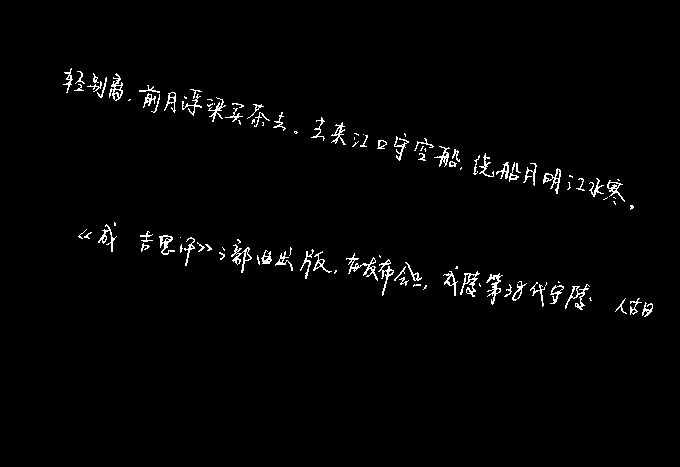 轻别离,前月浮梁买茶去。去来江口守空船,绕船月明江水寒。
《成 吉思汗》3部曲出版,在发布会上,成陵第38代守陵 人古日